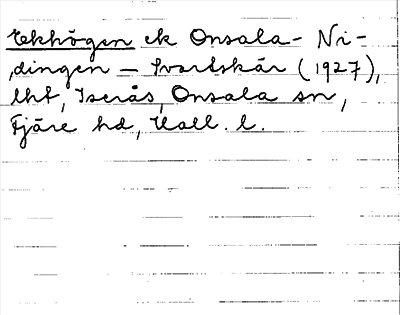 Ekhögen ek Onsala - Ni-
dingen – Svartskär (1927),
lht, Iserås, Onsala sn,
Fjäre hd, Hall. l.